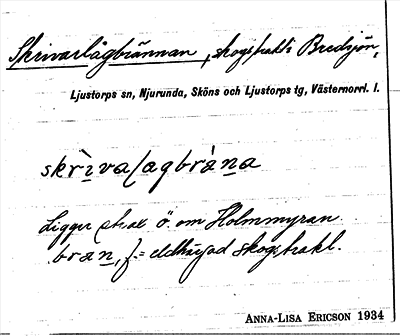 Skrivarlågbrännan, skogstrakt i Bredsjön,
Ljustorps sn, Njurunda, Sköns och Ljustorps tg, Västernorrl. l.
skrìvalagbràna
Ligger strax ö. om Holmmyran.
bran, f. = eldhärjad skogstrakt.
ANNA-LISA ERICSON 1934